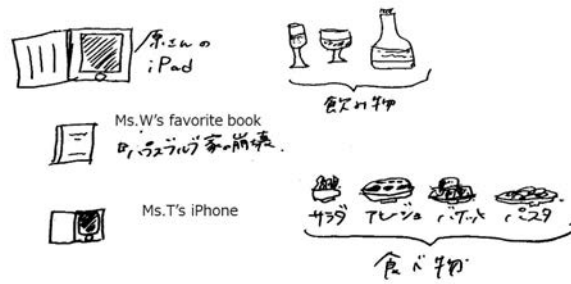 原さんの
iPad
飲み物
Ms.W's favorite book
『ハプスブルグ家の崩壊』
Ms.T's iPhone
サラダ アヒージョ バゲット パスタ
食べ物